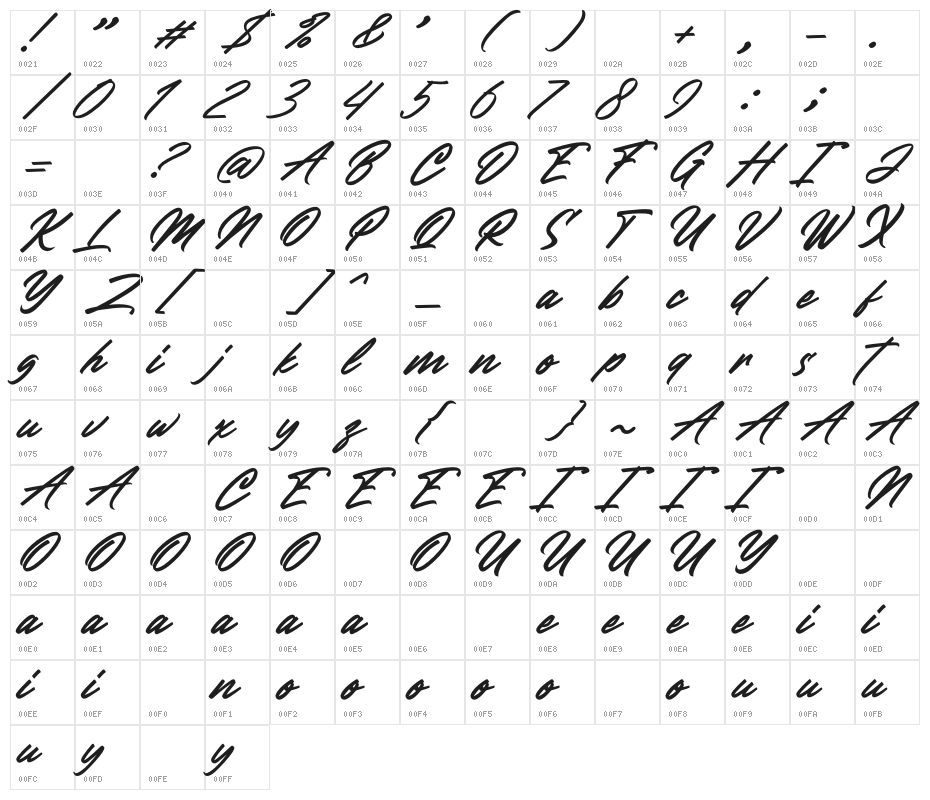 ! ” # $ % & ’ ( ) + , - .
0021 0022 0023 0024 0025 0026 0027 0028 0029 002A 002B 002C 002D 002E
/ 0 1 2 3 4 5 6 7 8 9 : ;
002F 0030 0031 0032 0033 0034 0035 0036 0037 0038 0039 003A 003B 003C
= ? @ A B C D E F G H I J
003D 003E 003F 0040 0041 0042 0043 0044 0045 0046 0047 0048 0049 004A
K L M N O P Q R S T U V W X
004B 004C 004D 004E 004F 0050 0051 0052 0053 0054 0055 0056 0057 0058
Y Z [ ] ^ _ a b c d e f
0059 005A 005B 005C 005D 005E 005F 0060 0061 0062 0063 0064 0065 0066
g h i j k l m n o p q r s t
0067 0068 0069 006A 006B 006C 006D 006E 006F 0070 0071 0072 0073 0074
u v w x y z { } ~ A A A A
0075 0076 0077 0078 0079 007A 007B 007C 007D 007E 00C0 00C1 00C2 00C3
A A C E E E E I I I I N
00C4 00C5 00C6 00C7 00C8 00C9 00CA 00CB 00CC 00CD 00CE 00CF 00D0 00D1
O O O O O O U U U U Y
00D2 00D3 00D4 00D5 00D6 00D7 00D8 00D9 00DA 00DB 00DC 00DD 00DE 00DF
a a a a a a e e e e i i
00E0 00E1 00E2 00E3 00E4 00E5 00E6 00E7 00E8 00E9 00EA 00EB 00EC 00ED
i i n o o o o o o u u u
00EE 00EF 00F0 00F1 00F2 00F3 00F4 00F5 00F6 00F7 00F8 00F9 00FA 00FB
u y y
00FC 00FD 00FE 00FF